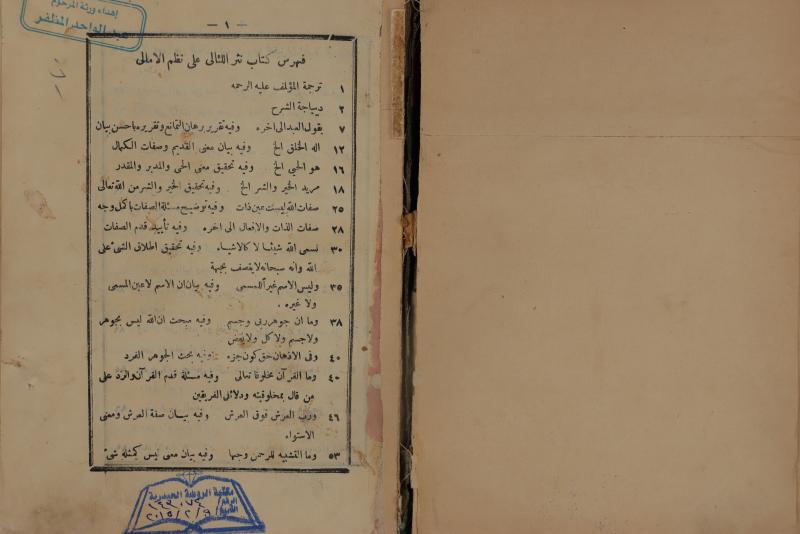 إهداء ورثة المرحوم
عبد الواحد المظفر
— ١ —
فهرس كتاب نثر اللئالى على نظم الامالى
١ ترجمة المؤلف عليه الرحمه
٢ ديباجة الشرح
٧ يقول العبد الى اخره وفيه تقرير برهان التمانع وتقريره باحسن بيان
١٢ اله الخلق الخ وفيه بيان معنى القديم وصفات الكمال
١٦ هو الحي الخ وفيه تحقيق معنى الحى والمدبر والمقدر
١٨ مريد الخير والشر الخ وفيه تحقيق الخير والشر من الله تعالى
٢٥ صفات الله ليست عين ذات وفيه توضيح مسئلة الصفات باكمل وجه
٢٨ صفات الذات والافعال الى اخره وفيه تأييد قدم الصفات
٣٠ نسمى الله شيئا لا كالاشياء وفيه تحقيق اطلاق الشئ على
الله وانه سبحانه لا يتصف بجهة
٣٥ وليس الاسم غير اللمسمى وفيه بيان ان الاسم لا عين المسمى
ولا غيره .
٣٨ وما ان جوهر ربى وجسم وفيه مبحث ان الله ليس بجوهر
ولا جسم ولا كل ولا بعض
٤٠ وفى الاذهان حق كون جزء وفيه بحث الجوهر الفرد
٤٠ وما القرآن مخلوقا تعالى وفيه مسئلة قدم القرآن والرد على
من قال بمخلوقيته ودلائل الفريقين
٤٦ ورب العرش فوق العرش وفيه بيان صفة العرش ومعنى
الاستواء
٥٣ وما التشبيه للرحمن وجها وفيه بيان معنى ليس كمثله شئ
مكتبة الروضة الحيدرية
الرقم
التاريخ ٢٠١٥/٢/٩